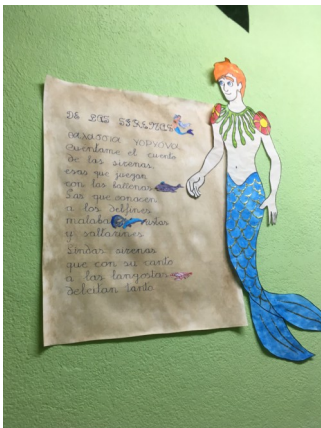 DE LAS SIRENAS
Cuéntame el cuento
de las sirenas
esas que juegan
con las ballenas
Las que conocen
a los delfines
malaba ristas
y saltarines
Lindas sirenas
que con su canto
a las langostas
deleitan tanto